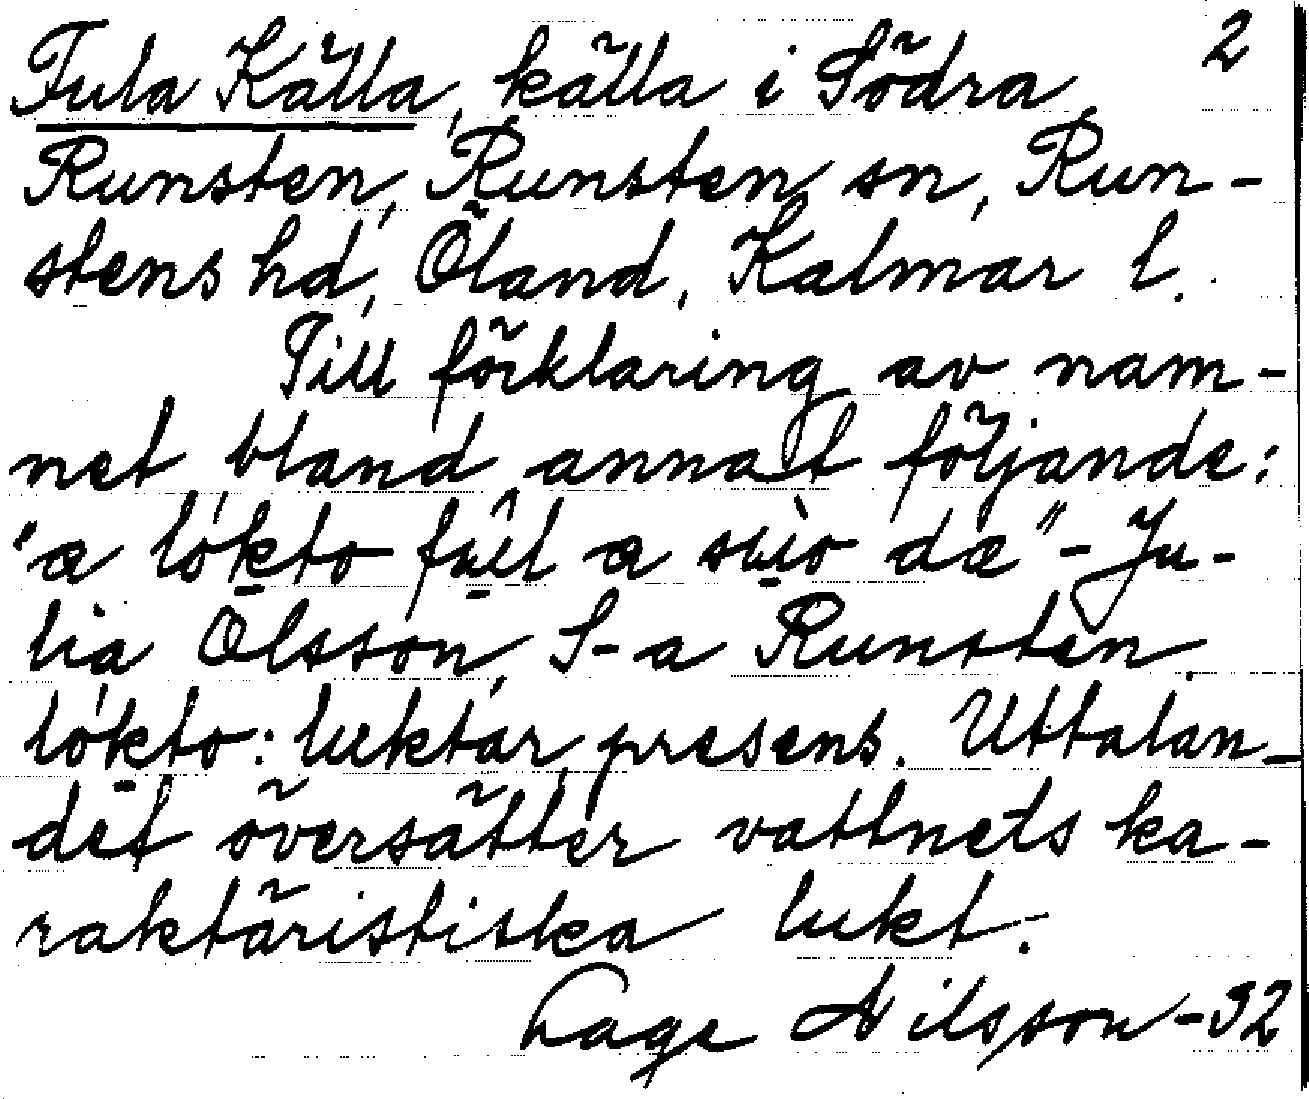 2
Fula Källa, källa i Södra
Runsten, Runsten sn, Run-
stens hd, Öland, Kalmar l.
Till förklaring av nam-
net, bland annat följande:
"æ lokto fûl æ
dæ" - Ju-
lia Olsson, S-a Runsten.
lokto: luktar, presens. Uttalan-
det översätter vattnets ka-
raktäristiska lukt.
Lage Nilsson -92